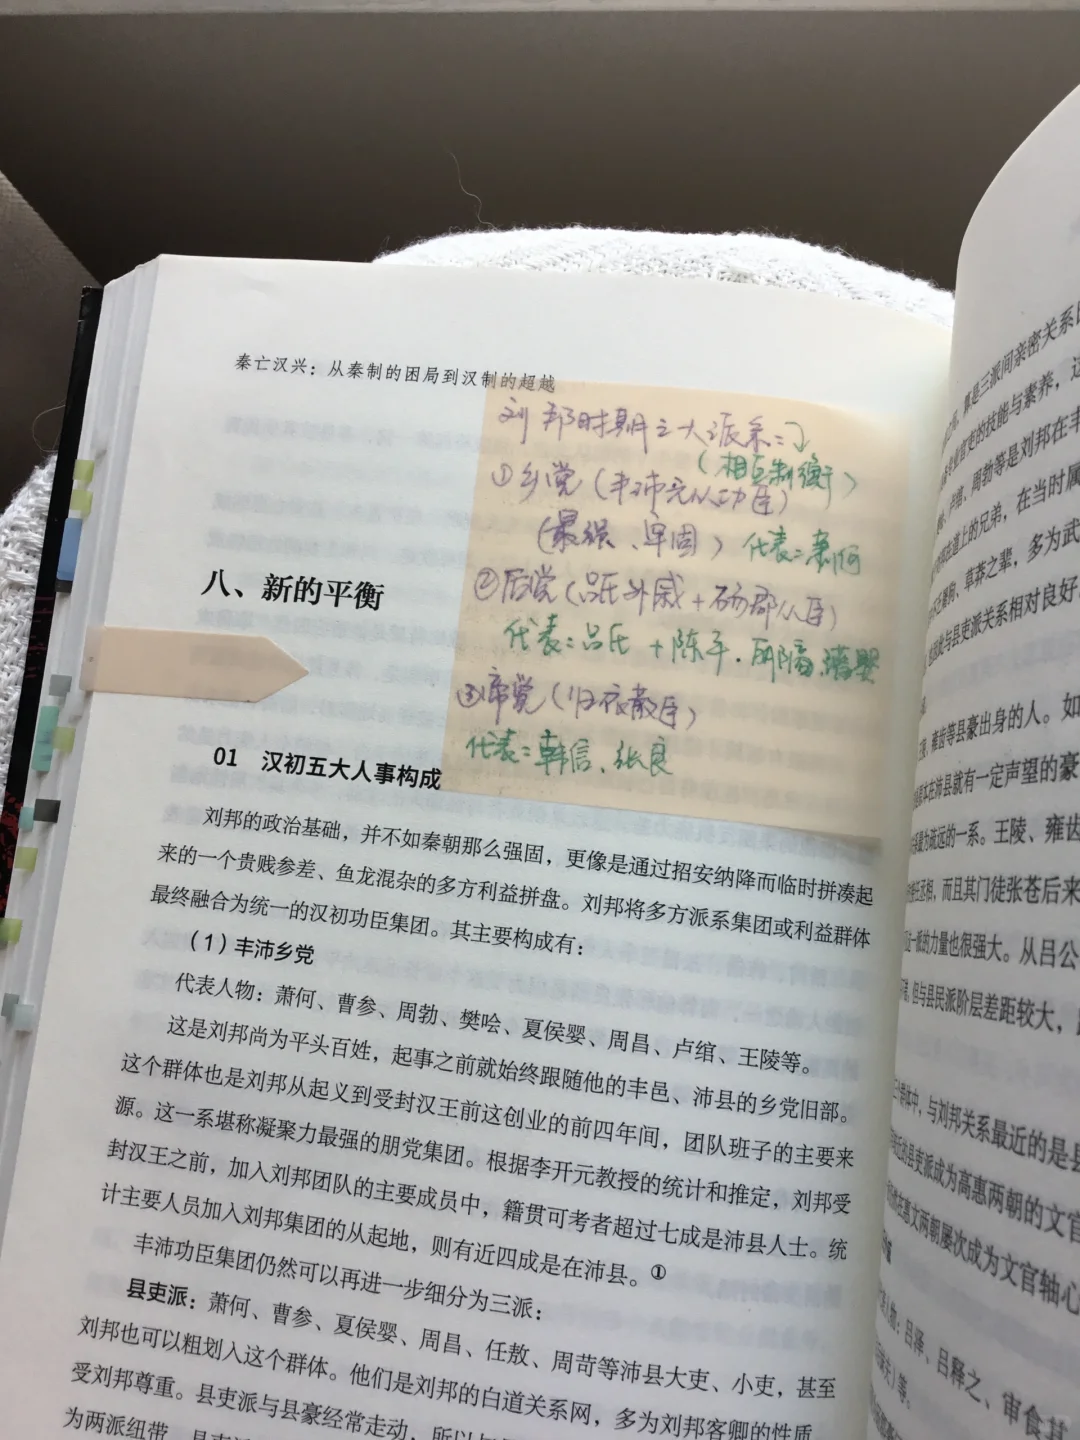 秦亡汉兴：从秦制的困局到汉制的超越
刘邦时期三大派系：
（相互制衡）
①乡党（丰沛元从功臣）
（最强、牢固） 代表：萧何
②后党（吕氏外戚+砀郡从臣）
代表：吕氏+陈平、灌婴
③帝党（归依散臣）
代表：韩信、张良
八、新的平衡
01 汉初五大人事构成
刘邦的政治基础，并不如秦朝那么强固，更像是通过招安纳降而临时拼凑起
来的一个贵贱参差、鱼龙混杂的多方利益拼盘。刘邦将多方派系集团或利益群体
最终融合为统一的汉初功臣集团。其主要构成有：
（1）丰沛乡党
代表人物：萧何、曹参、周勃、樊哙、夏侯婴、周昌、卢绾、王陵等。
这是刘邦尚为平头百姓，起事之前就始终跟随他的丰邑、沛县的乡党旧部。
这个群体也是刘邦从起义到受封汉王前这创业的前四年间，团队班子的主要来
源。这一系堪称凝聚力最强的朋党集团。根据李开元教授的统计和推定，刘邦受
封汉王之前，加入刘邦团队的主要成员中，籍贯可考者超过七成是沛县人士。统
计主要人员加入刘邦集团的从起地，则有近四成是在沛县。①
丰沛功臣集团仍然可以再进一步细分为三派：
县吏派：萧何、曹参、夏侯婴、周昌、任敖、周苛等沛县大吏、小吏，甚至
刘邦也可以粗划入这个群体。他们是刘邦的白道关系网，多为刘邦客卿的性质，
受刘邦尊重。县吏派与县豪经常走动，所以
为两派纽带。县吏
算是三派间亲密关系
专业官吏的技能与素养，这
卢绾、周勃等是刘邦在丰
道上的兄弟，在当时属
狗、草莽之辈，多为武
因此与县吏派关系相对良好。
雍齿等县豪出身的人。如
根本在沛县就有一定声望的豪
系最为疏远的一系。王陵、雍齿
任丞相，而且其门徒张苍后来
这一派的力量也很强大。从吕公
但与县民派阶层差距较大，
群体中，与刘邦关系最近的是县
的县吏派成为高惠两朝的文官
在惠文两朝屡次成为文官轴心
人物：吕泽、吕释之、审食其
等。